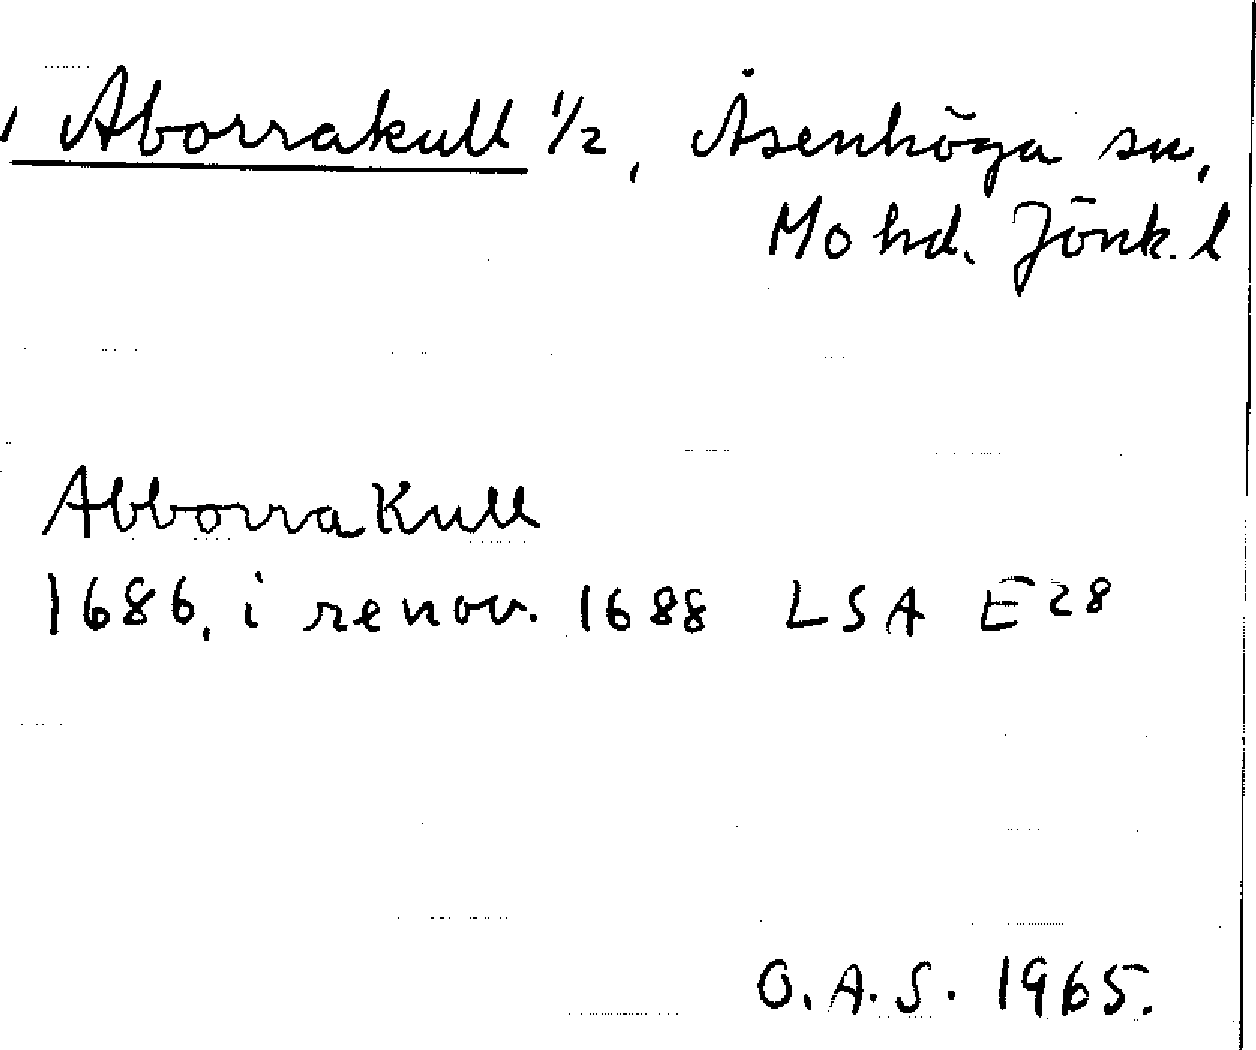 Aborrakull 1/2, Åsenhöga sn,
Mo hd. Jönk. l
Abborra Kull
1686, i renov. 1688 LSA E 28
O.A.S. 1965.